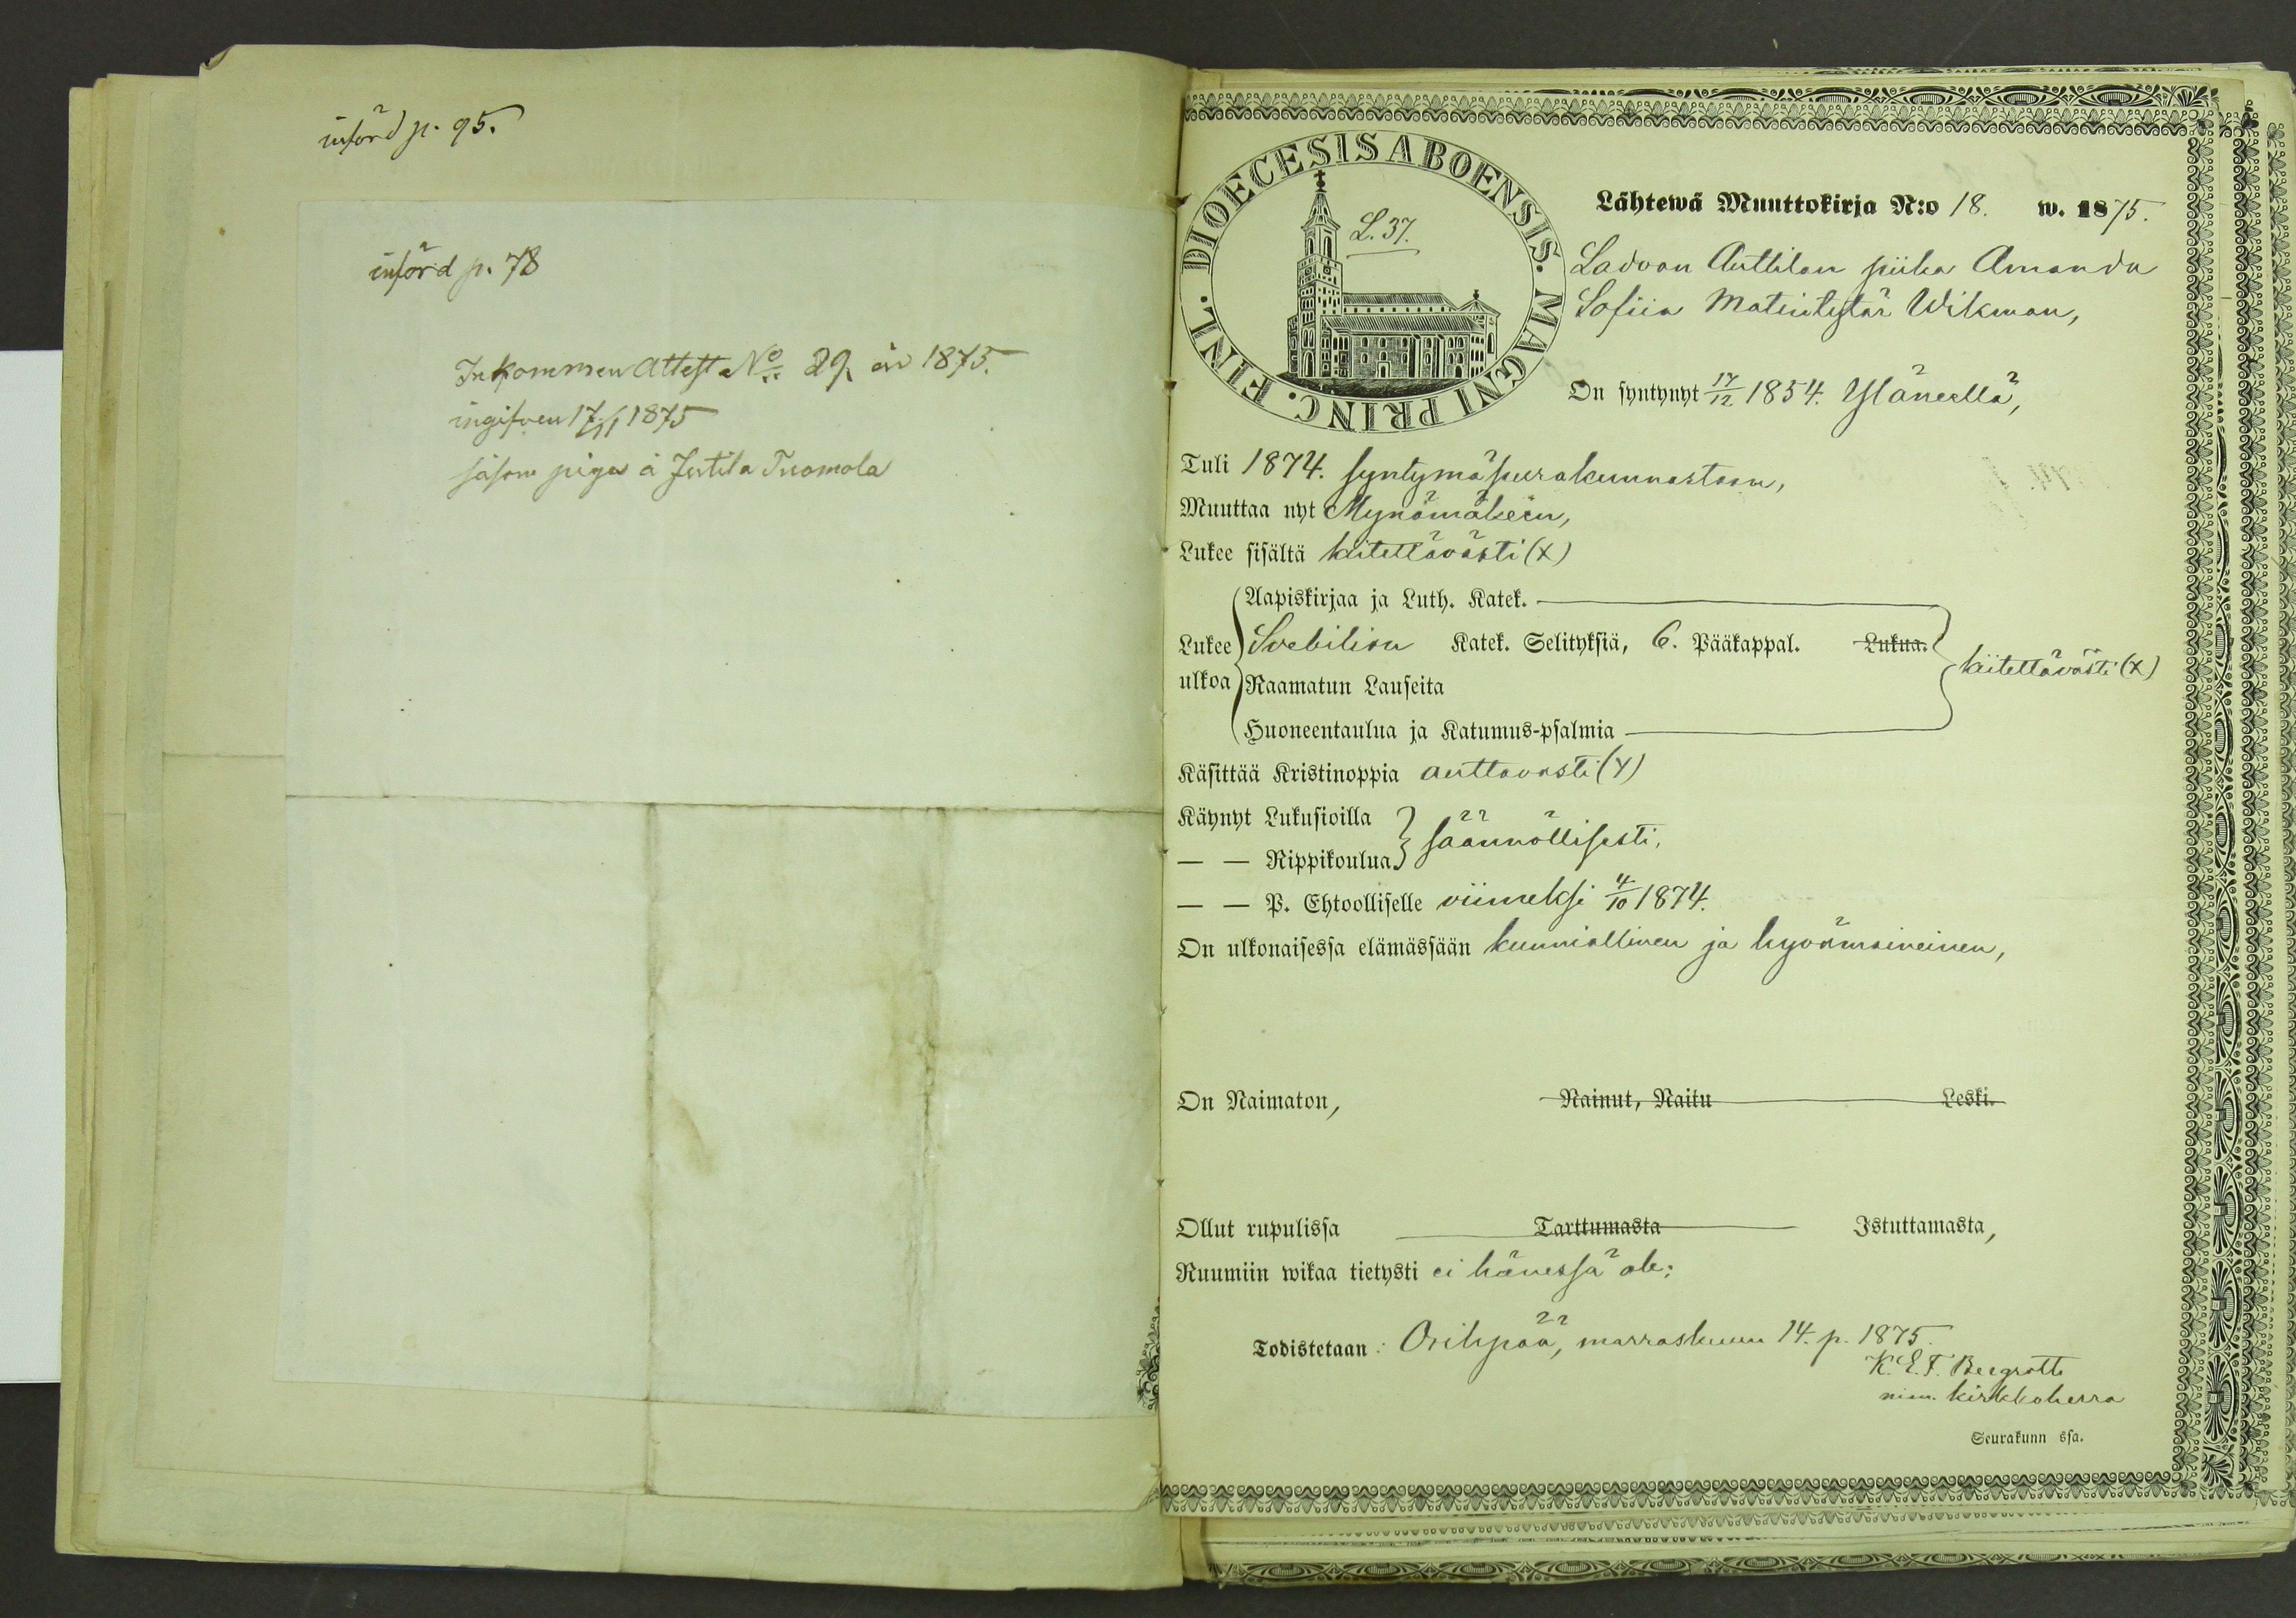 införd p. 95.
införd p. 78
Inkommen Attest No 29 år 1875.
ingifven 17/11 1875
såsom piga å Juttila Tuomola
DIOECESIS ABOENSIS. MAGNI PRINC. FINL.
L. 37.
Lähtewä Muuttokirja N:o 18. w. 1875.
Ladvon Anttilan piika Amanda
Sofiia Matintytär Wikman,
On syntynyt 17/12 1854. Yläneellä,
Tuli 1874. syntymäseurakunnastaan,
Muuttaa nyt Mynämäkeen,
Lukee sisältä kiitettävästi (X)
Aapiskirjaa ja Luth. Katek.
Lukee ulkoa Svebilion Katek. Selityksiä, 6. Pääkappal. Lukua.
Raamatun Lauseita
kiitettävästi (X)
Huoneentaulua ja Katumus-psalmia
Käsittää Kristinoppia auttavasti (Y)
Käynyt Lukusioilla
säännöllisesti,
— — Rippikoulua
— — P. Ehtoolliselle viimeksi 4/10 1874.
On ulkonaisessa elämässään kunniallinen ja hyvämaineinen,
On Naimaton, Nainut, Naitu Leski.
Ollut rupulissa Tarttumasta Istuttamasta,
Ruumiin wikaa tietysti ei hänessä ole:
Todistetaan: Oripää, marraskuun 14. p. 1875.
K. E. F. Bergroth
nim. kirkkoherra
Seurakunn ssa.